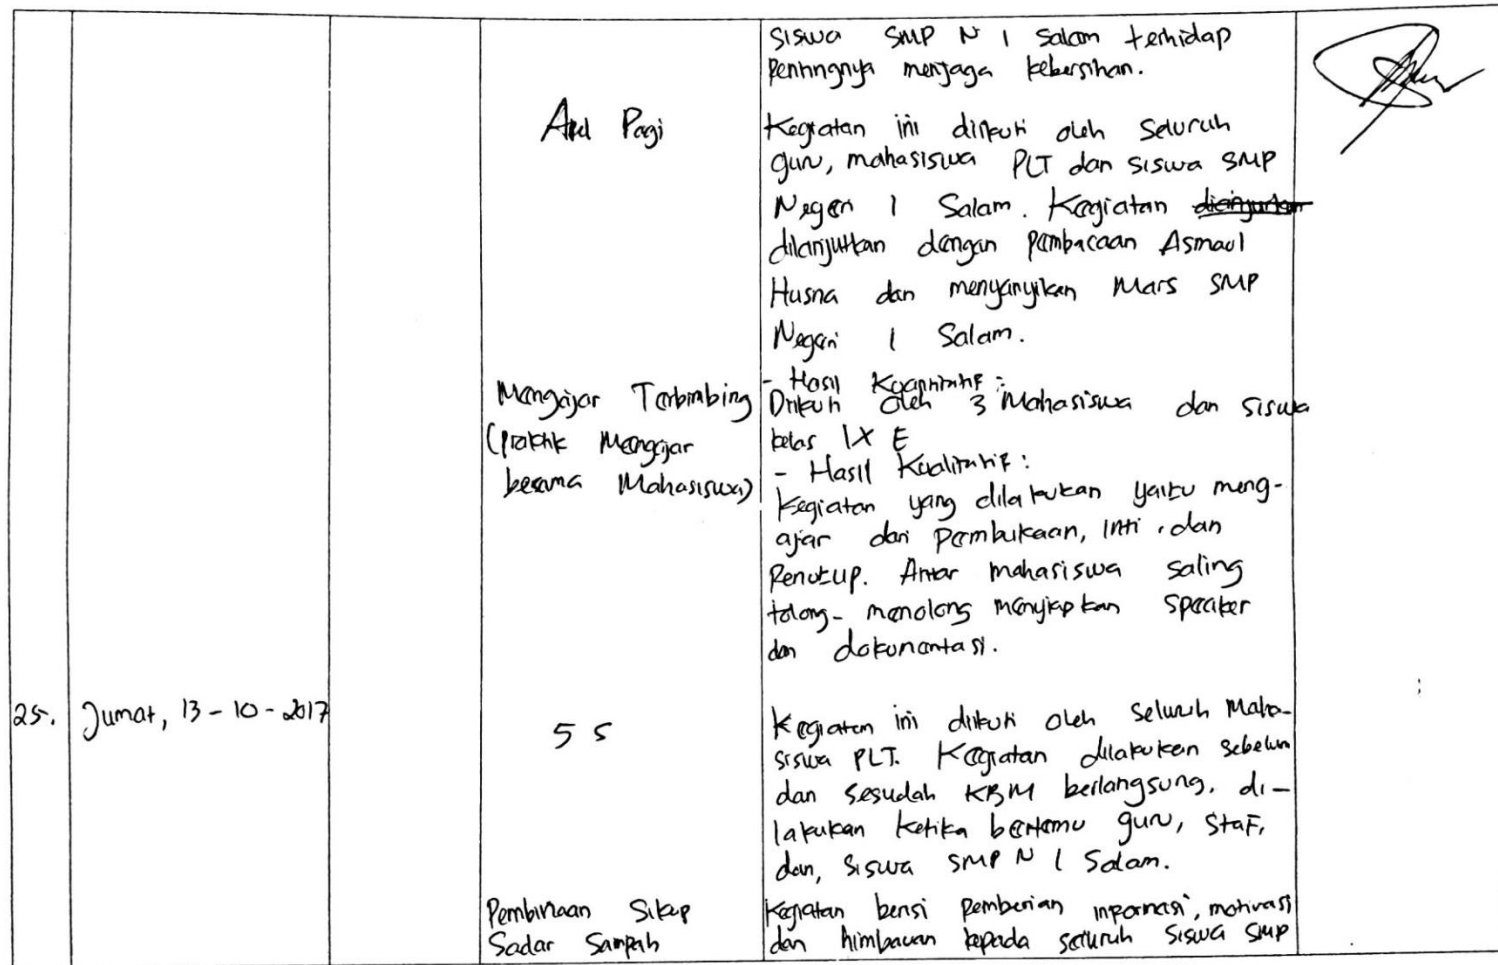 siswa SMP N 1 Salam terhidap
pentingnya menjaga kebersihan.
Apel Pagi
Kegiatan ini diikuti oleh seluruh
guru, mahasiswa PLT dan siswa SMP
Negeri 1 Salam. Kegiatan
dilanjutkan dengan pembacaan Asmaul
Husna dan menyanyikan Mars SMP
Negeri 1 Salam.
Mengajar Terbimbing
(praktik Mengajar
bersama Mahasiswa)
- Hasil Kuantitatif :
Diikuti oleh 3 Mahasiswa dan siswa
kelas IX E
- Hasil Kualitatif :
Kegiatan yang dilakukan yaitu meng-
ajar dari pembukaan, inti, dan
Penutup. Antar mahasiswa saling
tolong-menolong menyiapkan speaker
dan dokumentasi.
25. Jumat, 13-10-2017
5 S
Kegiatan ini diikuti oleh seluruh Maha-
siswa PLT. Kegiatan dilakukan sebelum
dan sesudah KBM berlangsung. di-
lakukan ketika bertemu guru, staf,
dan, siswa SMP N 1 Salam.
Pembinaan Sikap
Sadar Sampah
Kegiatan berisi pemberian informasi, motivasi
dan himbauan kepada seluruh siswa SMP